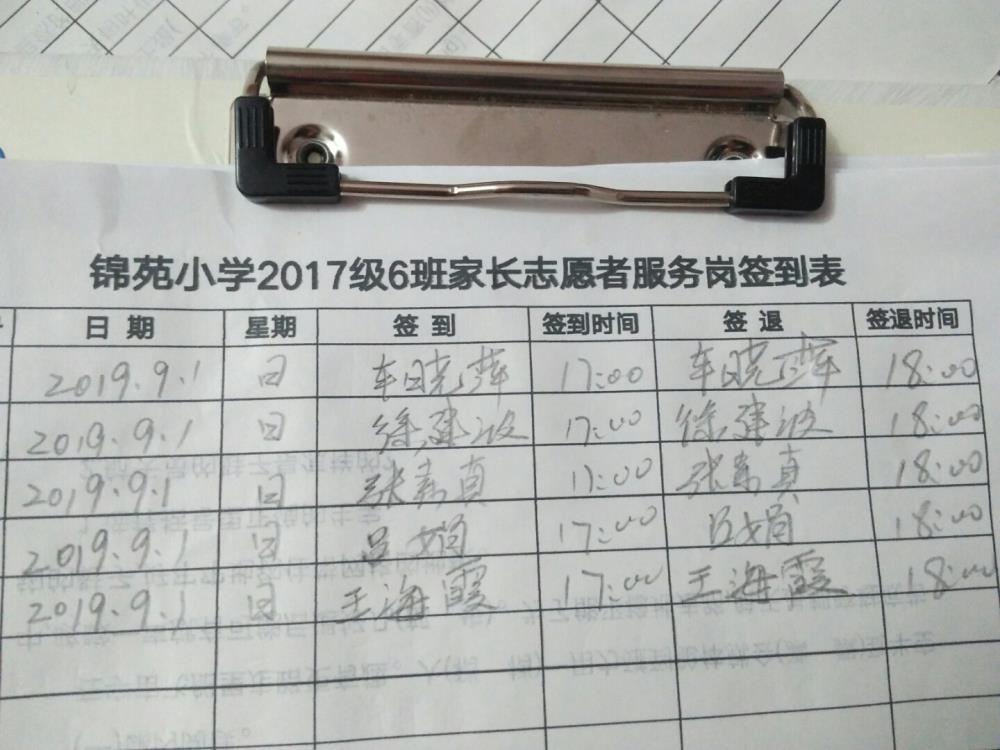 锦苑小学2017级6班家长志愿者服务岗签到表
日期 星期 签到 签到时间 签退 签退时间
2019.9.1 日 车晓萍 17:00 车晓萍 18:00
2019.9.1 日 徐建波 17:00 徐建波 18:00
2019.9.1 日 张嘉真 17:00 张嘉真 18:00
2019.9.1 日 吕娟 17:00 吕娟 18:00
2019.9.1 日 王海霞 17:00 王海霞 18:00